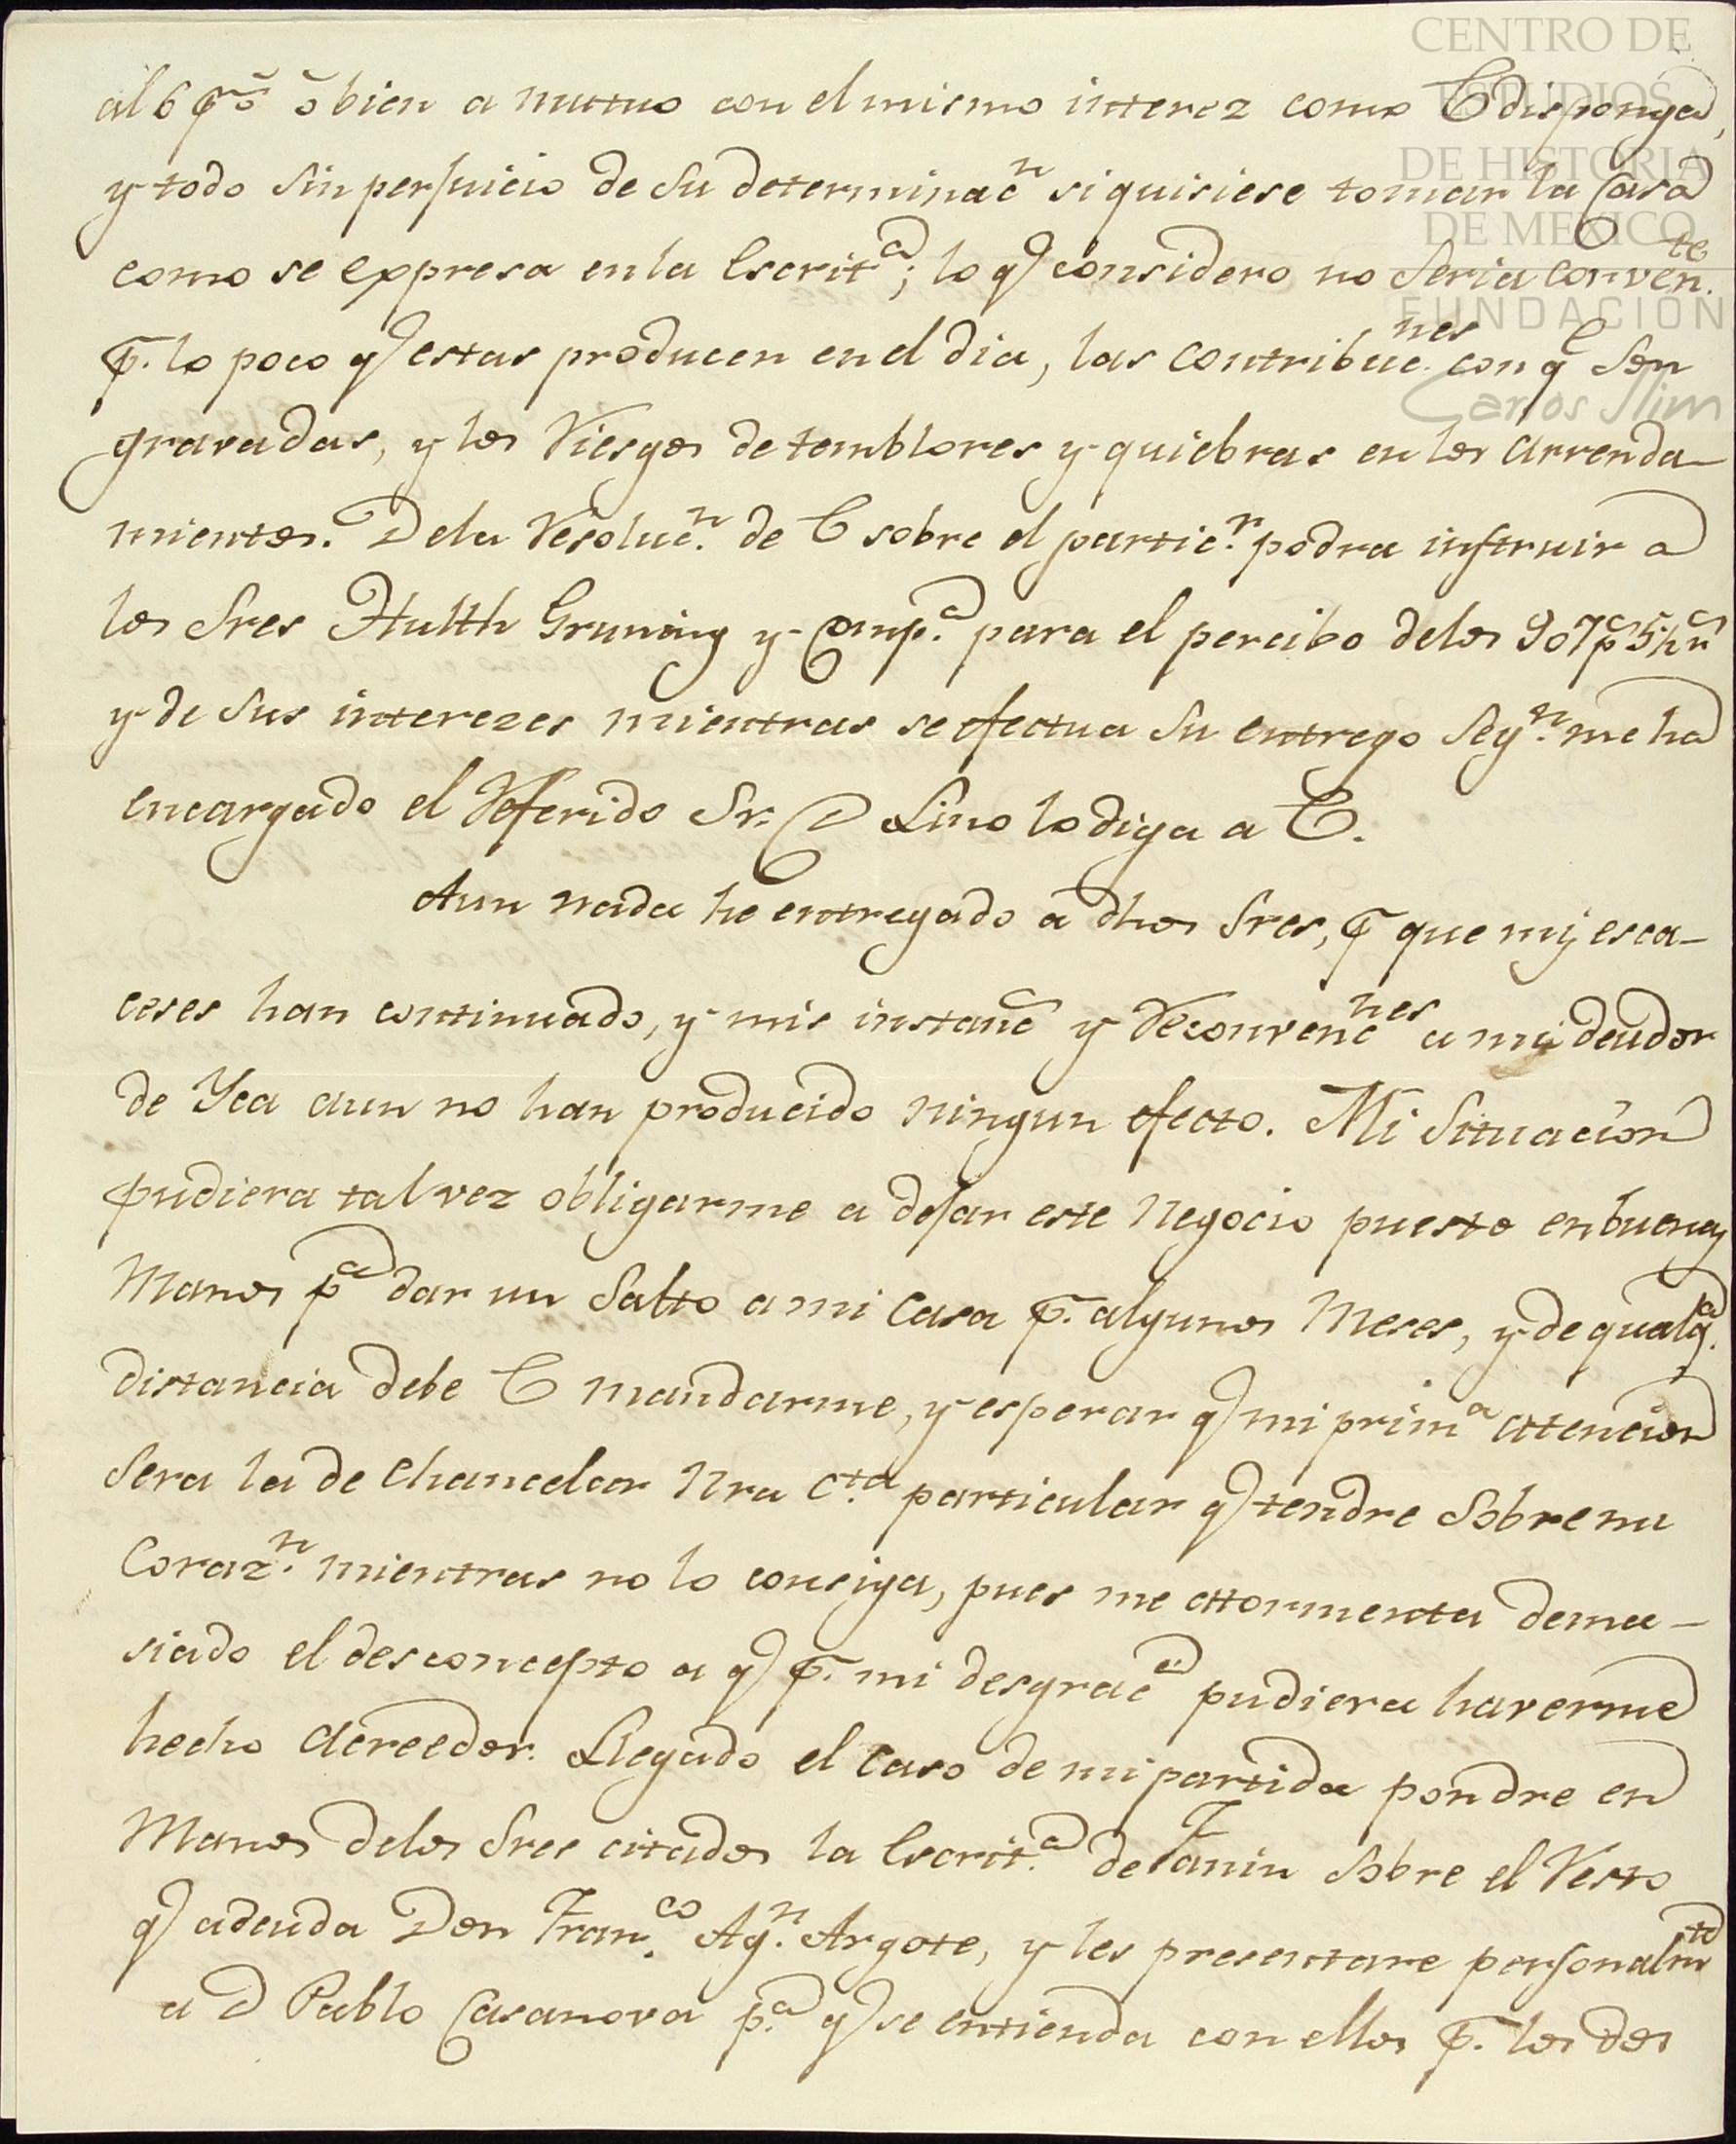 CENTRO DE
ESTUDIOS
DE HISTORIA
DE MEXICO
FUNDACIÓN
Carlos Slim
al 6 p%o ō bien a mutuo con el mismo interez como V disponga,
y todo sin perjuicio de su determinacn si quisiese tomar la Casa
como se expresa en la Escrita; lo q considero no Seria convente.
p. lo poco q estas producen en el dia, las contribucnes con qe son
gravadas, y los Riesgos de temblores y quiebras en los arrenda-
mientos. De la Resolucn. de V sobre el particr. podra instruir a
los Sres Hutth Gruning y Compa. para el percibo de los 907ps 5½ rs
y de sus interezes mientras se efectua su entrego Segn. me ha
encargado el Referido Sr. D Lino lo diga a V.
Aun nada he entregado a dhos Sres, p que mis esca-
ceses han continuado, y mis instancs y Reconvencnes a mi deudor
de Yca aun no han producido ningun efecto. Mi Situacion
pudiera tal vez obligarme a dejar este Negocio puesto en buenas
Manos pa dar un Salto a mi Casa p. algunos Meses, y de qualqa.
distancia debe V mandarme, y esperar q mi prima atencion
sera la de Chancelar Nra Cta. particular q tendre sobre mi
Corazn. mientras no lo consiga, pues me attormenta dema-
siado el desconcepto a q p. mi desgraca pudiera haverme
hecho acreedor. Llegado el caso de mi partida pondre en
Manos de los Sres citados la Escrita. de Fanin sobre el Resto
q adeuda Don Franco. Agn. Argote, y les presentare personalmte
a D Pablo Casanova pa. q se entienda con ellos p. los dos